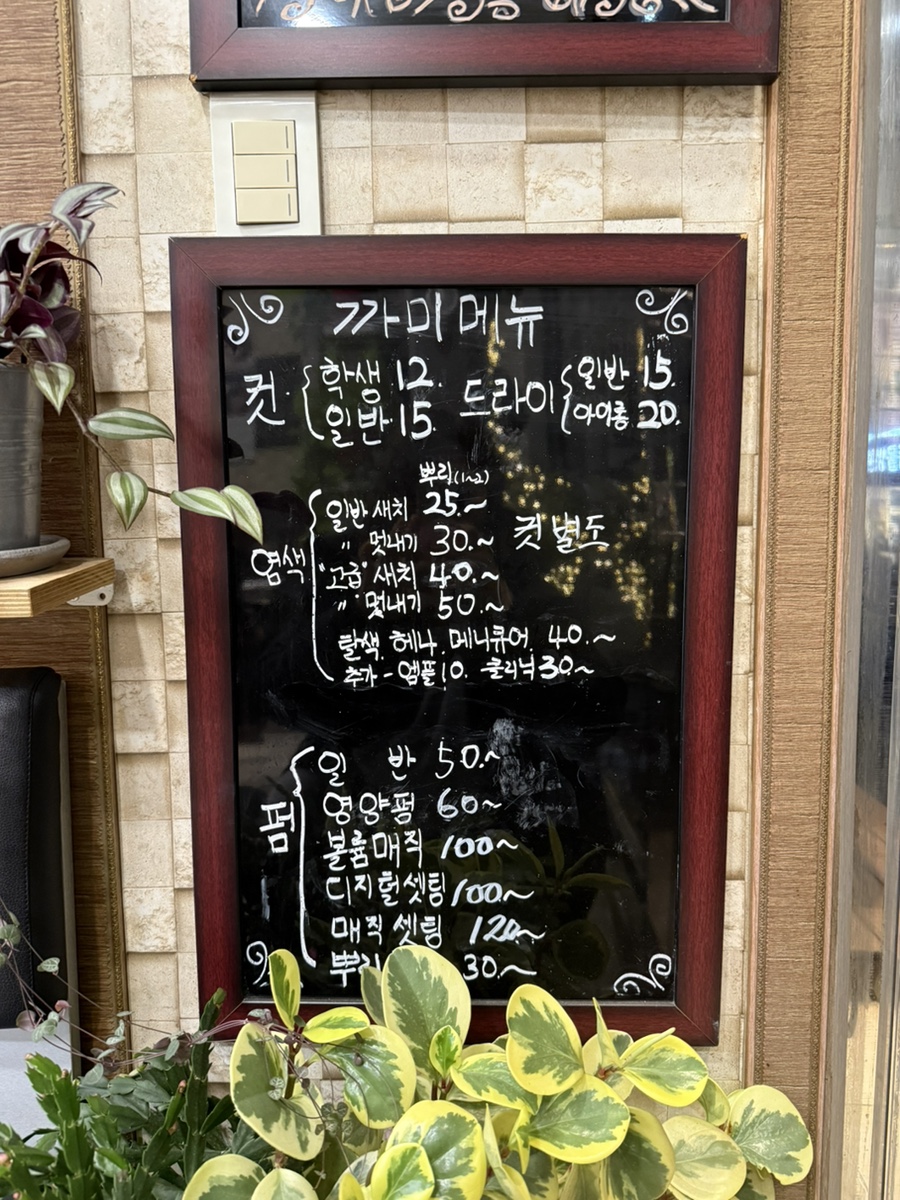 까미메뉴
컷 { 학생 12. 드라이 { 일반 15.
일반 15. 아이롱 20.
뿌리(1~2)
염색 { 일반 새치 25.~
〃 멋내기 30.~ 컷 별도
"고급" 새치 40.~
〃 멋내기 50.~
탈색. 헤나. 메니큐어. 40.~
추가 - 앰플 10. 클리닉 30.~
펌 { 일 반 50.~
영양펌 60~
볼륨매직 100~
디지털셋팅 100~
매직셋팅 120~
뿌리 30.~